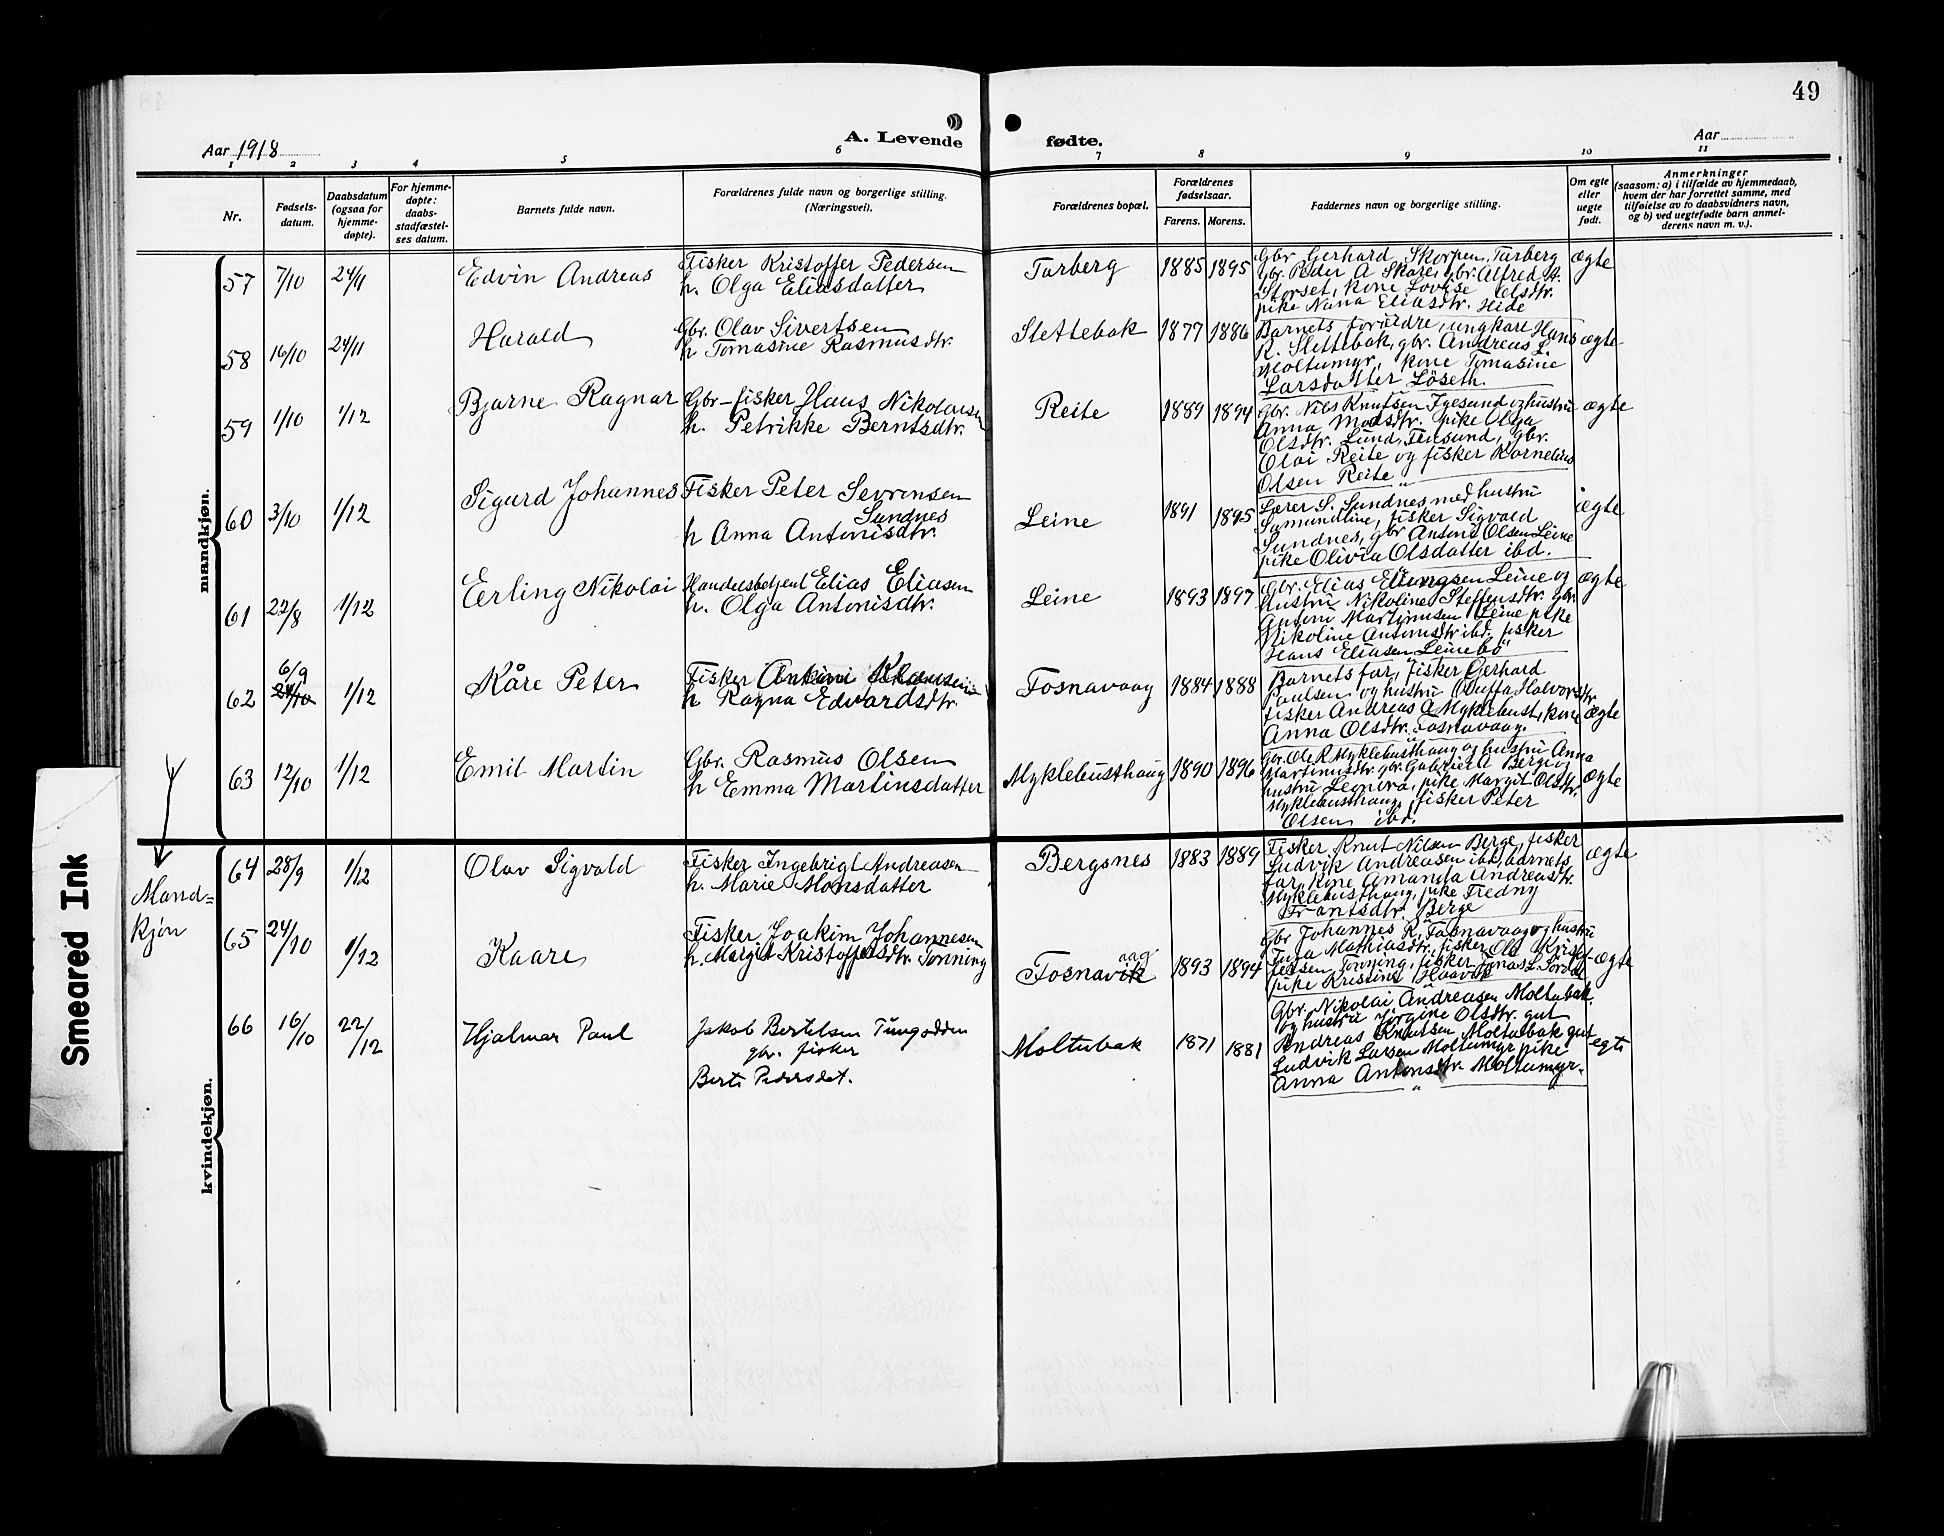 49
Aar 1918
A. Levende fødte.
Aar
1 2 3 4 5 6 7 8 9 10 11
Nr.
Fødsels-
datum.
Daabsdatum
(ogsaa for
hjemme-
døpte).
For hjemme-
døpte:
daabs-
stadfæstel-
ses datum.
Barnets fulde navn.
Forældrenes fulde navn og borgerlige stilling.
(Næringsvei).
Forældrenes bopæl.
Forældrenes
fødselsaar.
Farens. Morens.
Faddernes navn og borgerlige stilling.
Om egte
eller
uegte
født.
Anmerkninger
(saasom: a) i tilfælde av hjemmedaab,
hvem der har forrettet samme, med
tilføielse av to daabsvidners navn,
og b) ved uegtefødte barn anmel-
derens navn m. v.).
mandkjøn.
57 7/10 24/11 Edvin Andreas
Fisker Kristoffer Pedersen
h. Olga Eliasdatter
Tarberg 1885 1895
Gbr. Gerhard Skorpen, Tarberg
gbr. Peder A Skare, gbr. Alfred H.
Storset, kone Lovise Olsdtr.
pike Nana Eliasdtr. Hide
ægte
58 16/10 24/11 Harald
Gbr. Olav Sivertsen
h Tomasine Rasmusdtr.
Slettebak 1877 1886
Barnets forældre, ungkarl Hans
R. Slettebak, gbr. Andreas L
Moltumyr, kone Tomasine
Larsdatter Löseth.
ægte
59 1/10 1/12 Bjarne Ragnar
Gbr-fisker Hans Nikolaisen
h. Petrikke Berntsdtr.
Reite 1889 1894
Gbr. Nils Knutsen Igesund og hustru
Anna Madsdtr. pike Olga
Olsdtr. Lund, gbr.
Olai Reite og fisker Kornelius
Olsen Reite
ægte
60 3/10 1/12 Sigurd Johannes
Fisker Peter Sevrinsen
Sundnes
h Anna Antonisdtr.
Leine 1891 1895
Lærer S. Sundnes med hustru
Samundine, fisker Sigvald
Sundnes, gbr Antoni Olsen Leine
pike Olivia Olsdatter ibd.
ægte
61 22/8 1/12 Erling Nikolai
Handelsbetjent Elias Eliasen
h. Olga Antonisdtr.
Leine 1893 1897
Gbr. Elias Ellingsen Leine og
hustru Nikoline Steffensdtr. gbr.
Antoni Martinusen Leine pike
Nikoline Antonisdtr ibd. fisker
Hans Eliasen Leinebö
ægte
62 6/9 24/10 1/12 Kåre Peter
Fisker Antoni Klausen
h Ragna Edvardsdtr.
Fosnavaag 1884 1888
Barnets far, fisker Gerhard
Paulsen og hustru Oluffa Halvorsdtr
fisker Andreas A Myklebust, kone
Anna Olsdtr. Fosnavaag.
ægte
63 12/10 1/12 Emil Martin
Gbr. Rasmus Olsen
h Emma Martinsdatter
Myklebusthaug 1890 1896
Gbr. Ole R Myklebusthaug og hustru Anna
Martinusdtr. gbr. Gabriel A Berge og
hustru Leonora, pike Margit Olsdtr.
Myklebusthaug, fisker Peter
Olsen ibd.
ægte
Mand=
kjøn
kvindekjøn.
64 28/9 1/12 Olav Sigvald
Fisker Ingebrigt Andreasen
h. Marie Monsdatter
Bergsnes 1883 1889
Fisker Knut Nilsen Berge, fisker
Ludvik Andreasen ibd, barnets
far, kone Amanda Andreasdtr.
Myklebusthaug, pike Fredny
Frantsdtr. Berge
ægte
65 24/10 1/12 Kaare
Fisker Joakim Johannesen
h. Margit Kristoffersdtr. Torvning
aag
Fosnavik 1893 1894
Gbr. Johannes R. Fosnavaag og hustru
Mathiasdtr, fisker Ole Kristof-
fersen Torvning, fisker Jonas L. Sørdal
pike Kristine Haavik
ægte
66 16/10 22/12 Hjalmar Paul
Jakob Bertelsen Tungodden
gbr. fisker
Berte Pedersdat.
Moltubak 1871 1881
Gbr. Nikolai Andreasen Moltubak.
og hustru Jörgine Olsdtr. gut
Andreas Knutsen Moltubak gut
Ludvik Larsen Moltumyr pike
Anna Antonsdtr. Moltumyr.
egte
Smeared Ink